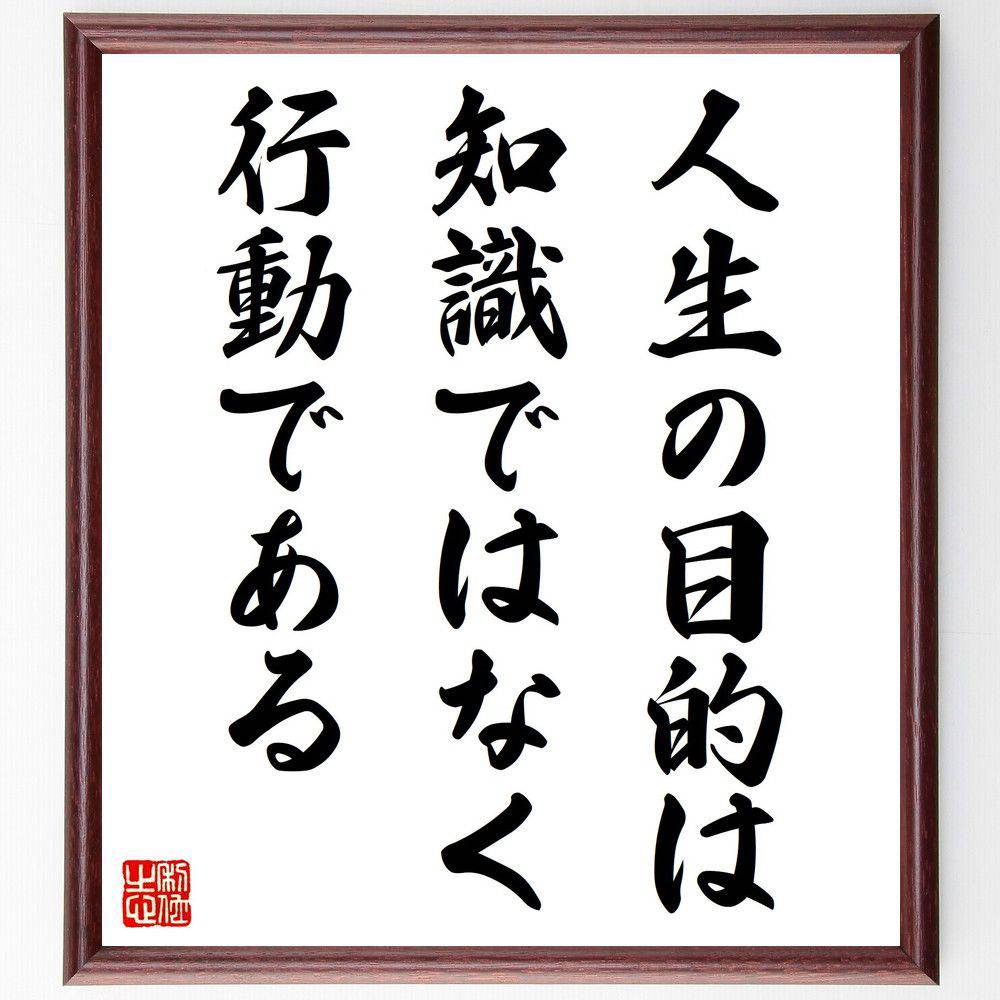 人生の目的は
知識ではなく
行動である